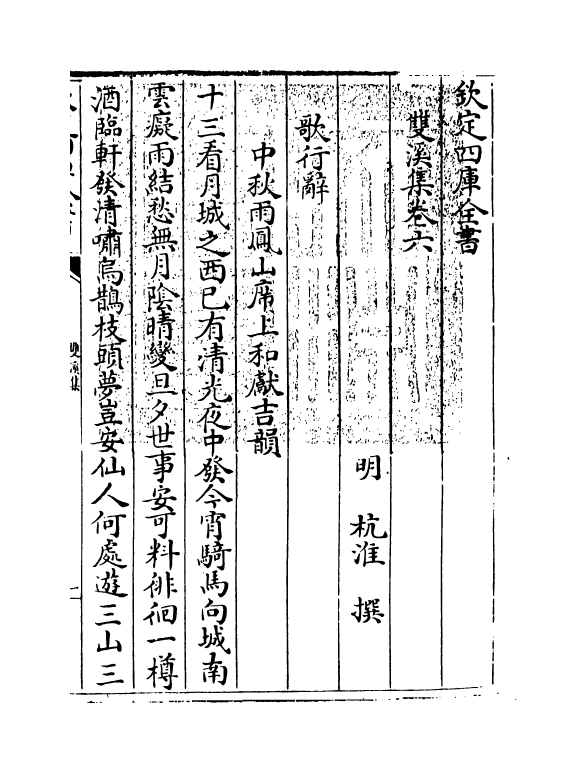 欽定四庫全書
雙溪集卷六
明 杭淮 撰
歌行辭
中秋雨鳳山席上和獻吉韻
十三看月城之西已有清光夜中發今宵騎馬向城南
雲癡雨結愁無月陰晴變旦夕世事安可料徘徊一樽
酒臨軒發清嘯烏鵲枝頭夢豈安仙人何處遊三山三
雙溪集
一